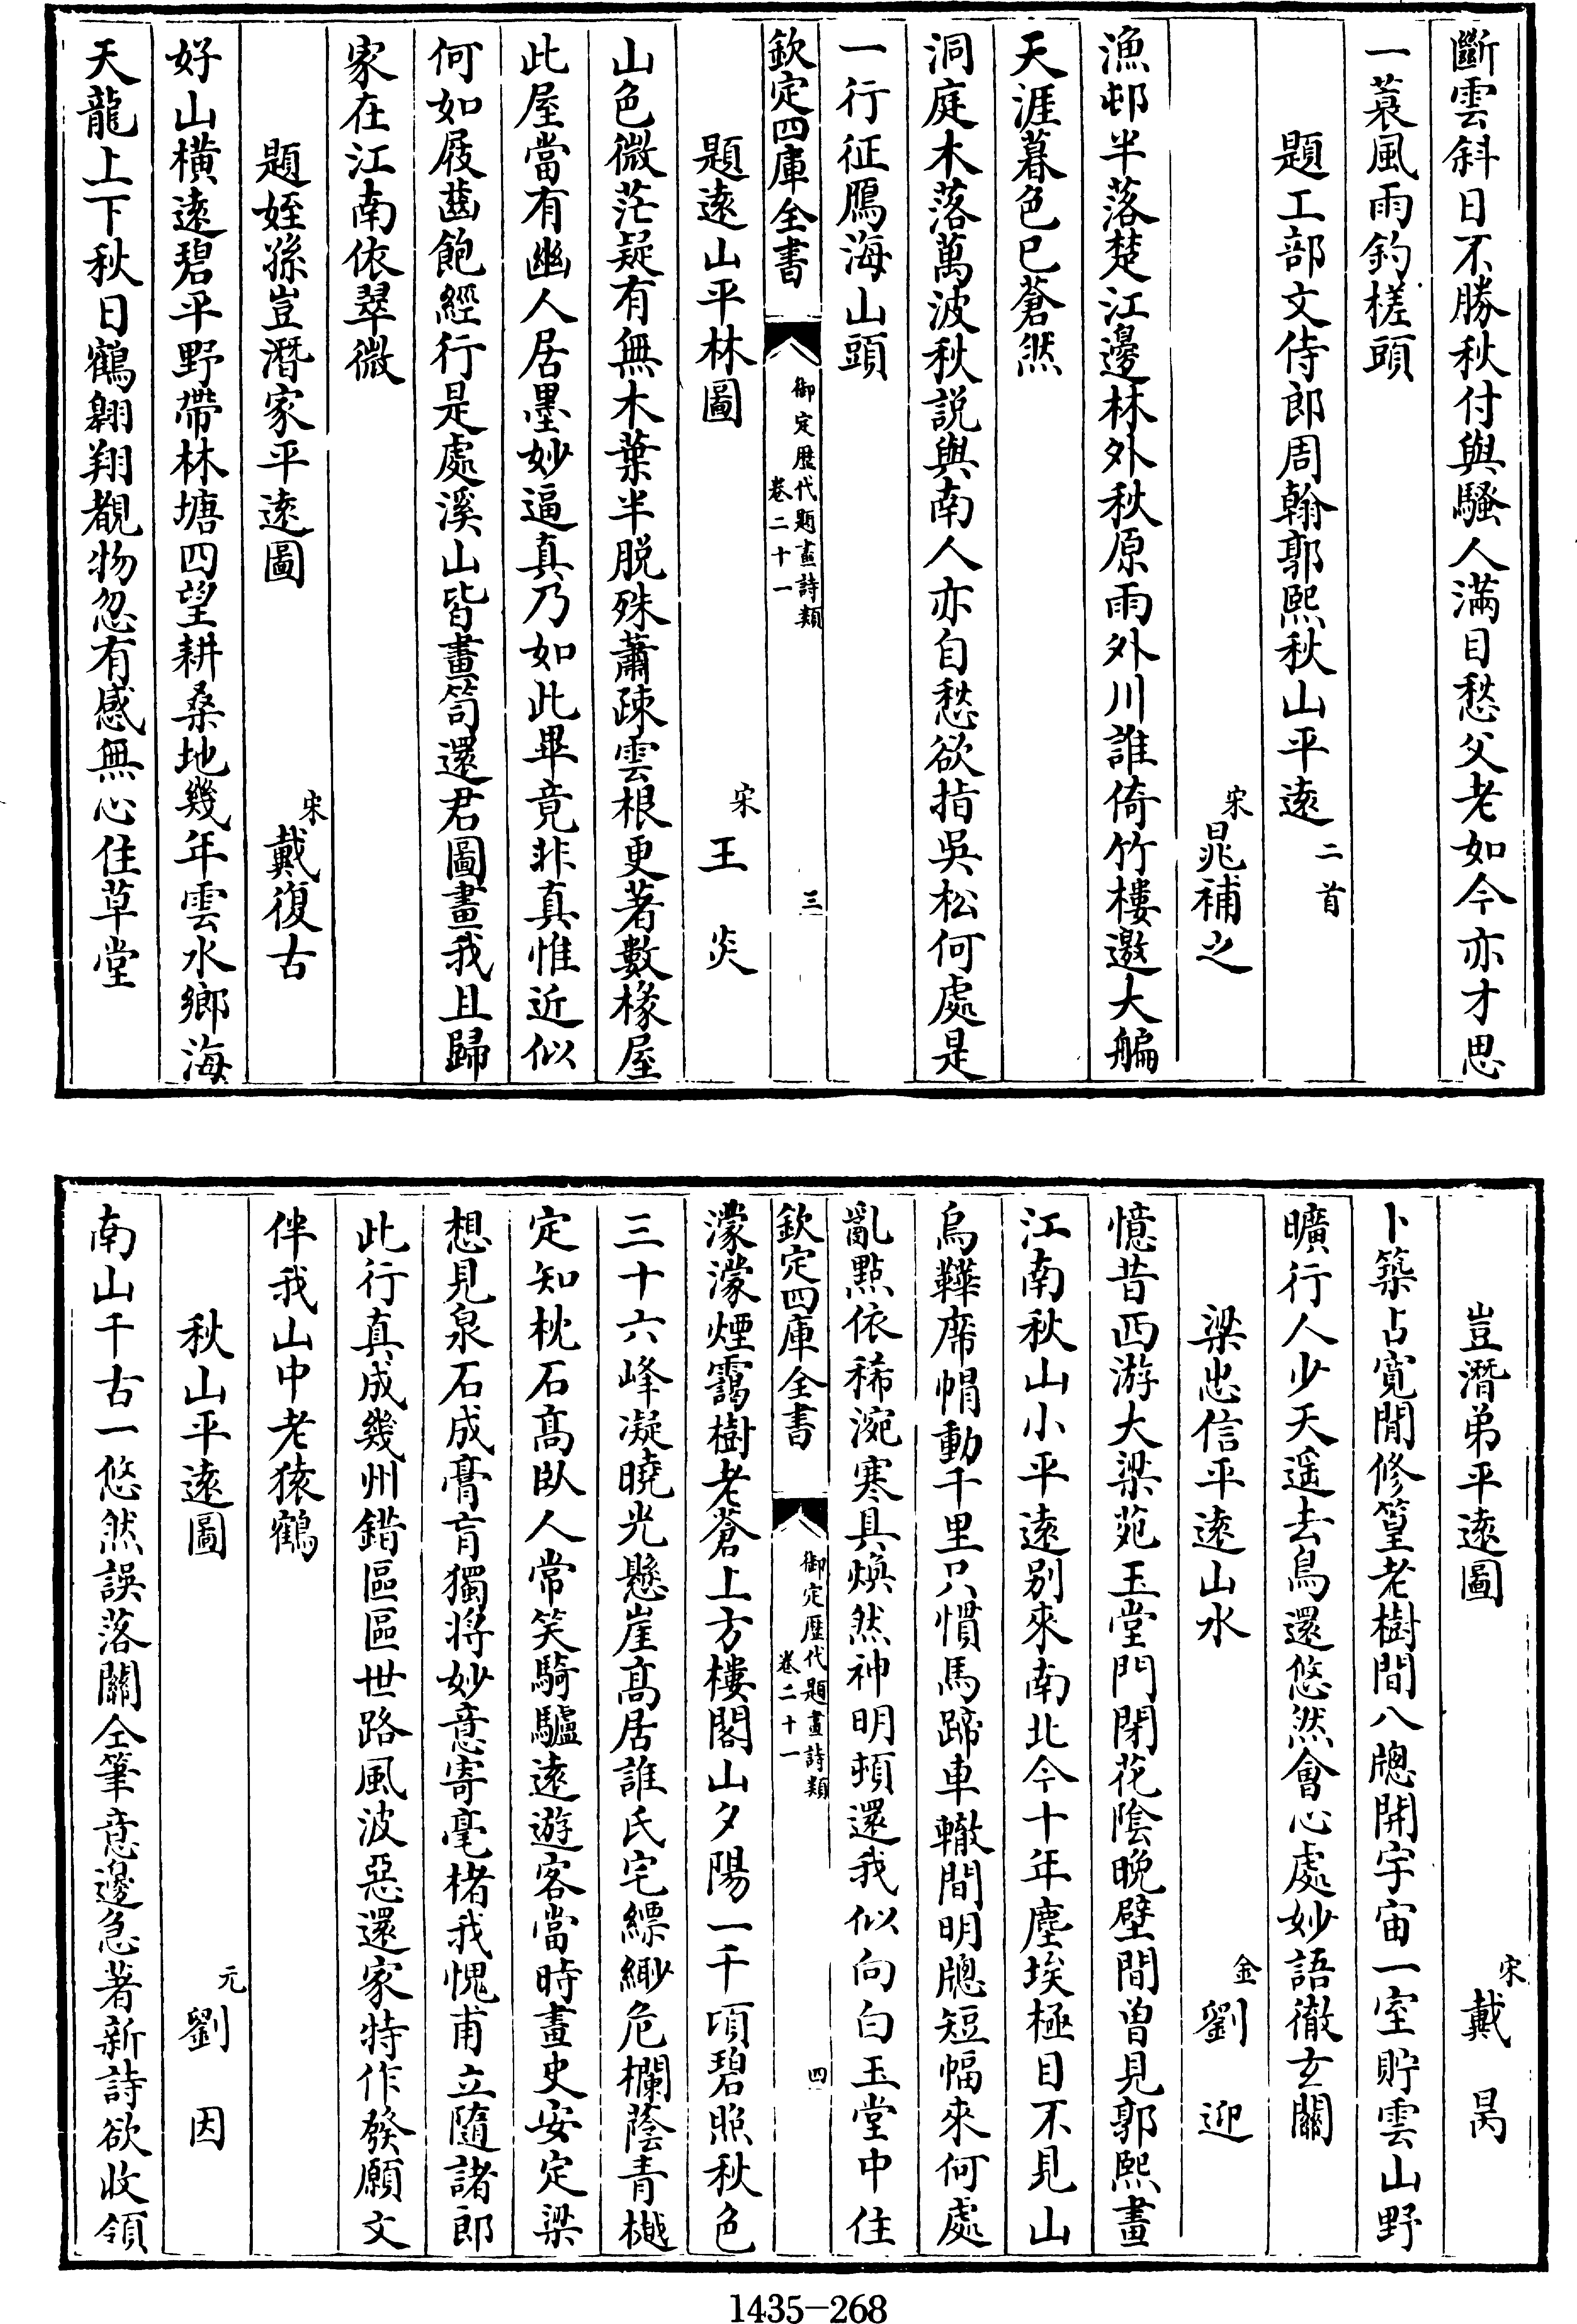 斷雲斜日不勝秋付與騷人滿目愁父老如今亦才思
一蓑風雨釣槎頭
題工部文侍郎周翰郭熙秋山平遠二首
宋晁補之
漁邨半落楚江邊林外秋原雨外川誰倚竹樓邀大艑
天涯暮色已蒼然
洞庭木落萬波秋説與南人亦自愁欲指吳松何處是
一行征鴈海山頭
欽定四庫全書
御定歷代題畫詩類
卷二十一
三
題遠山平林圖
宋王炎
山色微茫疑有無木葉半脱殊蕭疎雲根更著數椽屋
此屋當有幽人居墨妙逼真乃如此畢竟非真惟近似
何如屐齒飽經行是處溪山皆畫笥還君圖畫我且歸
家在江南依翠微
題姪孫豈潛家平遠圖
宋戴復古
好山橫遠碧平野帶林塘四望耕桑地幾年雲水鄉海
天龍上下秋日鶴翱翔覩物忽有感無心住草堂
豈潛弟平遠圖
宋戴昺
卜築占寛閒修篁老樹間八牕開宇宙一室貯雲山野
曠行人少天遥去鳥還悠然會心處妙語徹玄關
梁忠信平遠山水
金劉迎
憶昔西游大梁苑玉堂門閉花陰晚壁間曽見郭熙畫
江南秋山小平遠别來南北今十年塵埃極目不見山
烏鞾席帽動千里只慣馬蹄車轍間明牕短幅來何處
亂點依稀涴寒具煥然神明頓還我似向白玉堂中住
欽定四庫全書
御定歷代題畫詩類
卷二十一
四
濛濛煙靄樹老蒼上方樓閣山夕陽一千頃碧照秋色
三十六峰凝曉光懸崖髙居誰氏宅縹緲危欄蔭青樾
定知枕石髙臥人常笑騎驢遠遊客當時畫史安定梁
想見泉石成膏肓獨將妙意寄毫楮我愧甫立隨諸郎
此行真成幾州錯區區世路風波惡還家特作發願文
伴我山中老猿鶴
秋山平遠圖
元劉因
南山千古一悠然誤落關仝筆意邊急著新詩欲收領
1435-268